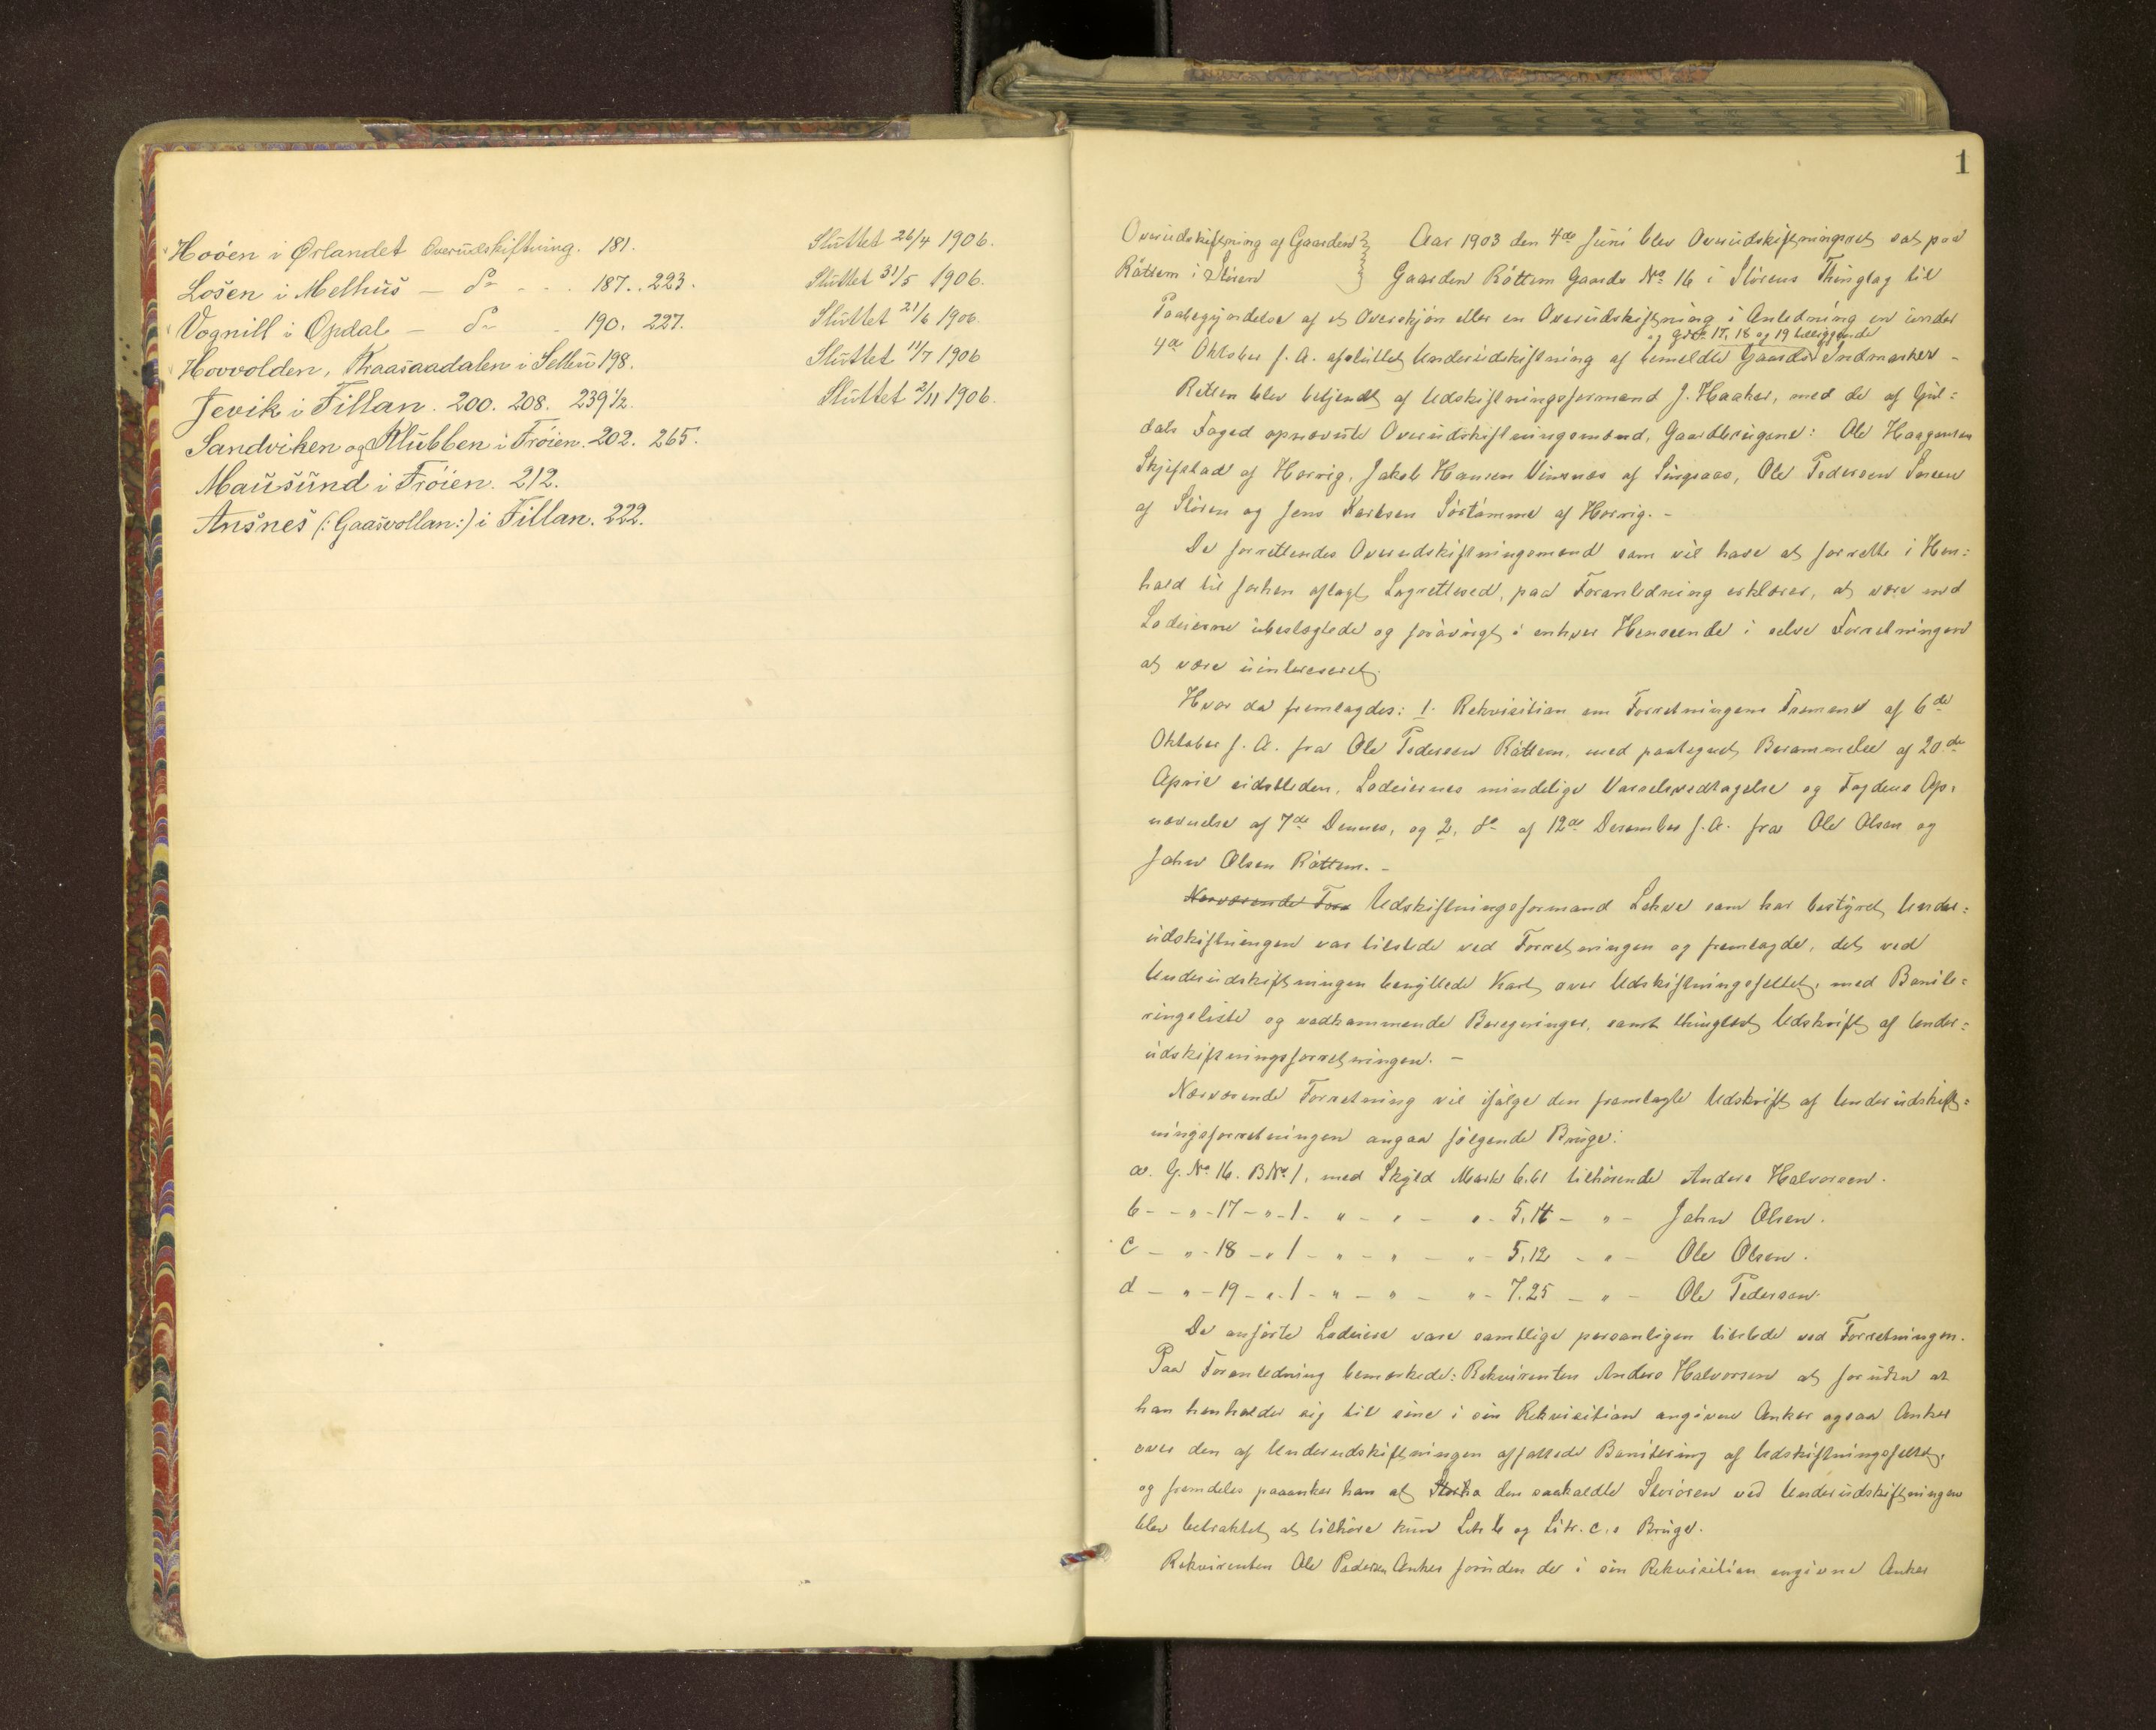 Hoøen i Ørlandet Overudskiftning. 181. Sluttet 26/4 1906.
Løsen i Melhus — Do - . . 187. . 223. Sluttet 31/5 1906.
Vognill i Opdal — Do - 190. 227. Sluttet 21/6 1906.
Hovvolden, Kraasaadalen i Selbu 198. Sluttet 11/7 1906
Jevik i Fillan. 200. 208. 239½. Sluttet 2/11 1906.
Sandviken og Klubben i Frøien. 202. 265.
Mausund i Frøien. 212.
Ansnes (: Gaasvollan :) i Fillan. 222.
1
Overudskiftning af Gaarden
Røttem i Støren
Aar 1903 den 4de Juni blev Overudskiftningsret sat paa
Gaarden Røttem Gaards No 16 i Størens Thinglag til
Paabegyndelse af et Overskjøn eller en Overudskiftning i Anledning en under
og Gno 17, 18 og 19 beliggende
4de Oktober f. A. afsluttet Underudskiftning af bemeldte Gaards Indmarker -
Retten blev betjendt af Udskiftningsformand J. Haaker, med de af Gul=
dals Foged opnævnte Overudskiftningsmænd, Gaardbrugerne: Ole Haagensen
Skjefstad af Horrig, Jakob Hansen Vinsnes af Singsaas, Ole Pedersen
af Støren og Jens Karlsen Sørtømme af Horrig. -
De forrettendes Overudskiftningsmænd som vil have at forrette i Hen=
hold til forhen aflagt Lagrettesed, paa Foranledning erklærer, at være med
Lodeierne ubeslægtede og forøvrigt i enhver Henseende i selve Forretningen
at være uinteresseret.
Hvor da fremlagdes: 1. Rekvisition om Forretningens Fremme af 6de
Oktober f. A. fra Ole Pedersen Røttem, med paategnet Berammelse af 20de
April sidstleden, Lodeiernes mindelige Varselsvedtagelse og Fogdens Op=
nævnelse af 7de Dennes, og 2, do af 12te Desember f. A. fra Ole Olsen og
John Olsen Røttem. -
Nærværende Forr Udskiftningsformand Lekve som har bestyret Under=
udskiftningen var tilstede ved Forretningen og fremlagde, det ved
Underudskiftningen benyttede Kart over Udskiftningsfeltet, med Bonite=
ringsliste og vedkommende Beregninger, samt thinglæst Udskrift af Under=
udskiftningsforretningen. —
Nærværende Forretning vil ifølge den fremlagte Udskrift af Underudskift=
ningsforretningen angaa følgende Bruge:
a. G. No 16. BNo 1, med Skyld Mark 6.61 tilhørende Anders Halvorsen.
b - - " - 17 - " - 1 - " - " - " - 5,14 - " - John Olsen.
c — " - 18 - " 1 - " - " - " - 5,12 - " - Ole Olsen.
d — " - 19 - " - 1 - " - " - " - 7.25 - " - Ole Pedersen.
De anførte Lodeiere vare samtlige personligen tilstede ved Forretningen.
Paa Foranledning bemærkede: Rekvirenten Anders Halvorsen at foruden at
han henholder sig til sine i sin Rekvisition angivne Anker ogsaa Anker
over den af Underudskiftningen affattede Bonitering af Udskiftningsfeltet,
og fremdeles paaanker han at den saakaldte Storøren ved Underudskiftningen
blev betraktet at tilhøre kun Litr b og Litr. c.s Bruge.
Rekvirenten Ole Pedersen Anker foruden de i sin Rekvisition angivne Anker